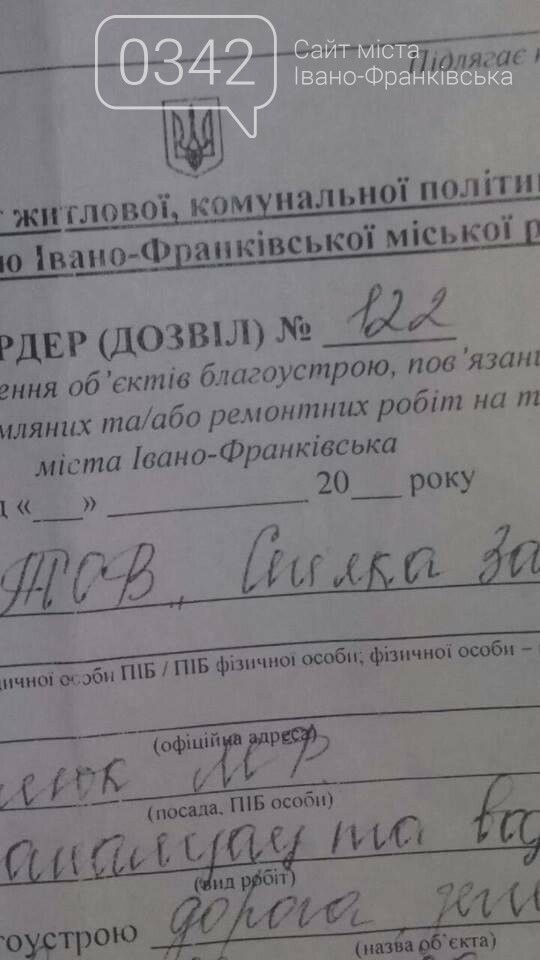 0342
Сайт міста
Івано-Франківська
Підлягає
житлової, комунальної політи
ю Івано-Франківської міської р
РДЕР (ДОЗВІЛ) № 122
ення об’єктів благоустрою, пов’язани
мляних та/або ремонтних робіт на т
міста Івано-Франківська
д «___» ____________ 20___ року
ТОВ Спілка За
ичної особи ПІБ / ПІБ фізичної особи; фізичної особи –
(офіційна адреса)
нюк М В
(посада, ПІБ особи)
та вод
(вид робіт)
гоустрою дорога, зеле
(назва об’єкта)